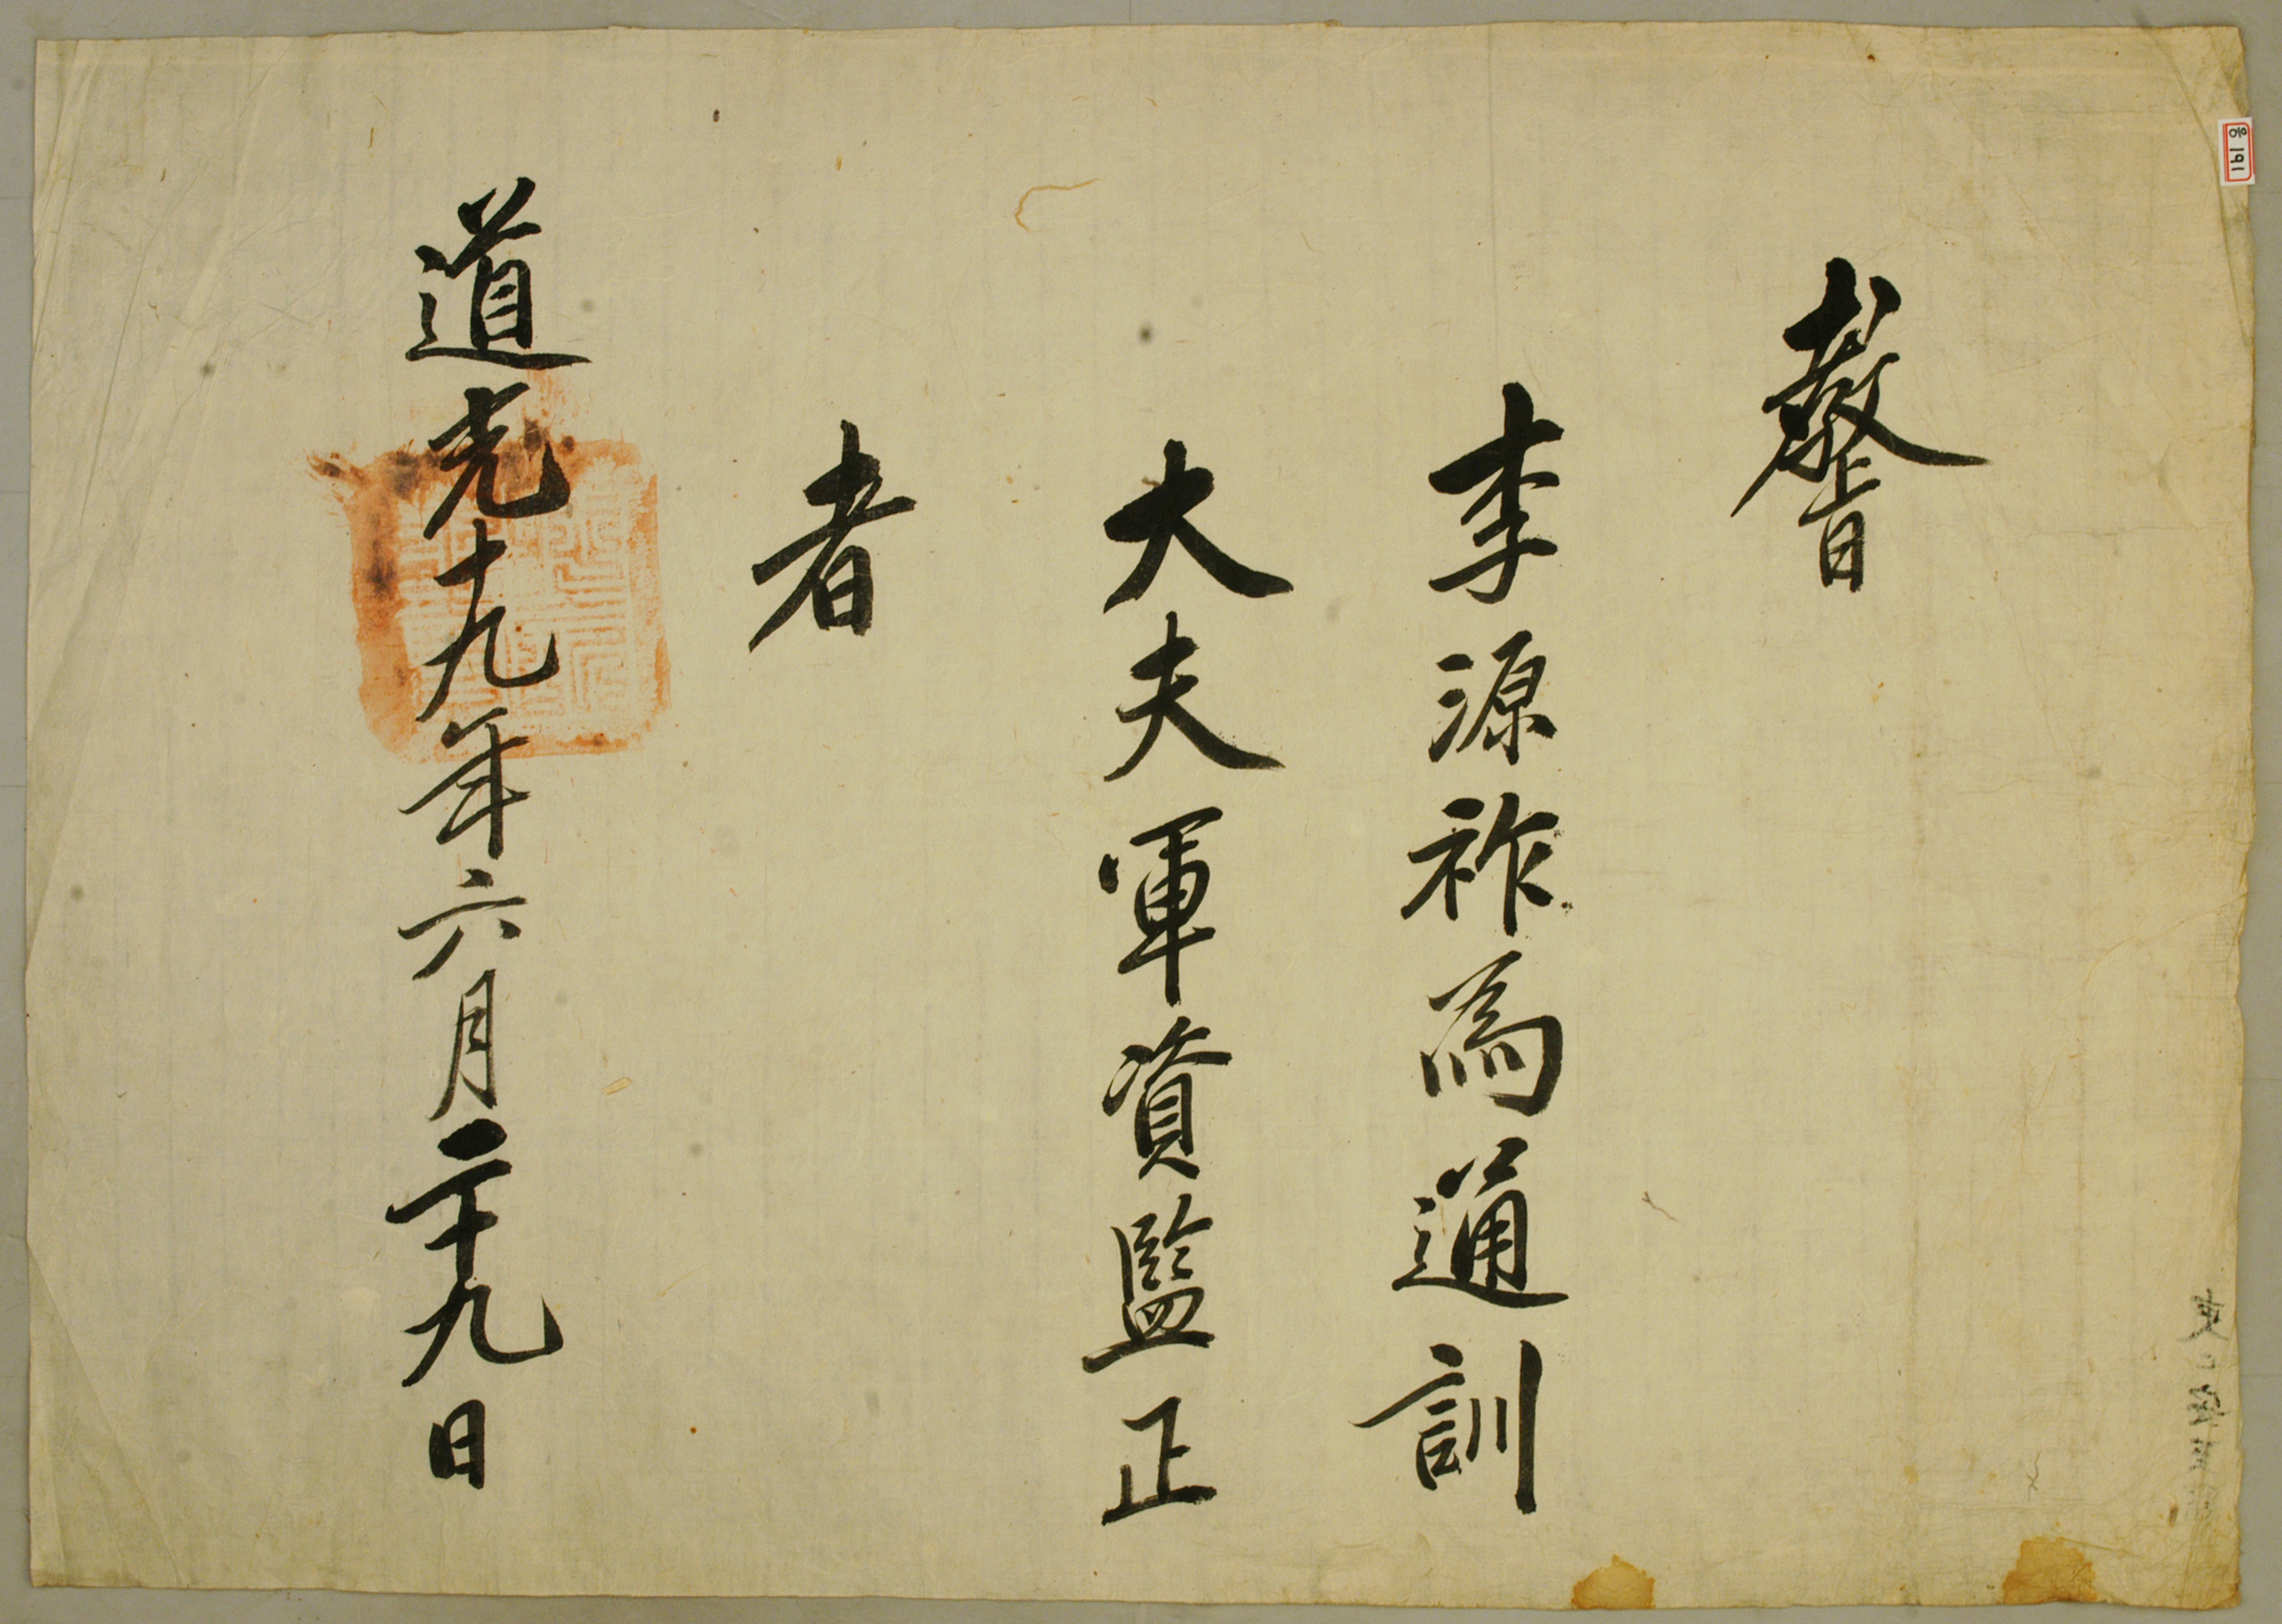 敎旨
李源祚爲通訓
大夫軍資監正
者
道光十九年六月二十九日
응 191